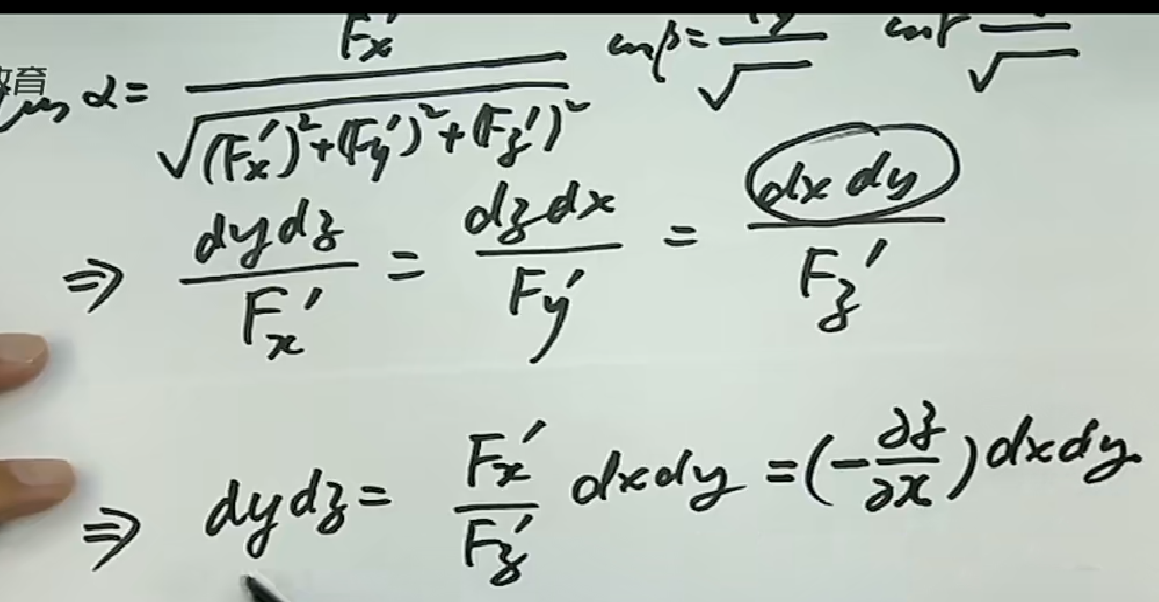 育
cos α = F'x / √((F'x)² + (F'y)² + (F'z)²) cosβ = / √ cosγ / √
⇒ dydz / F'x = dzdx / F'y = dxdy / F'z
⇒ dydz = F'x / F'z dxdy = (-∂z/∂x) dxdy.